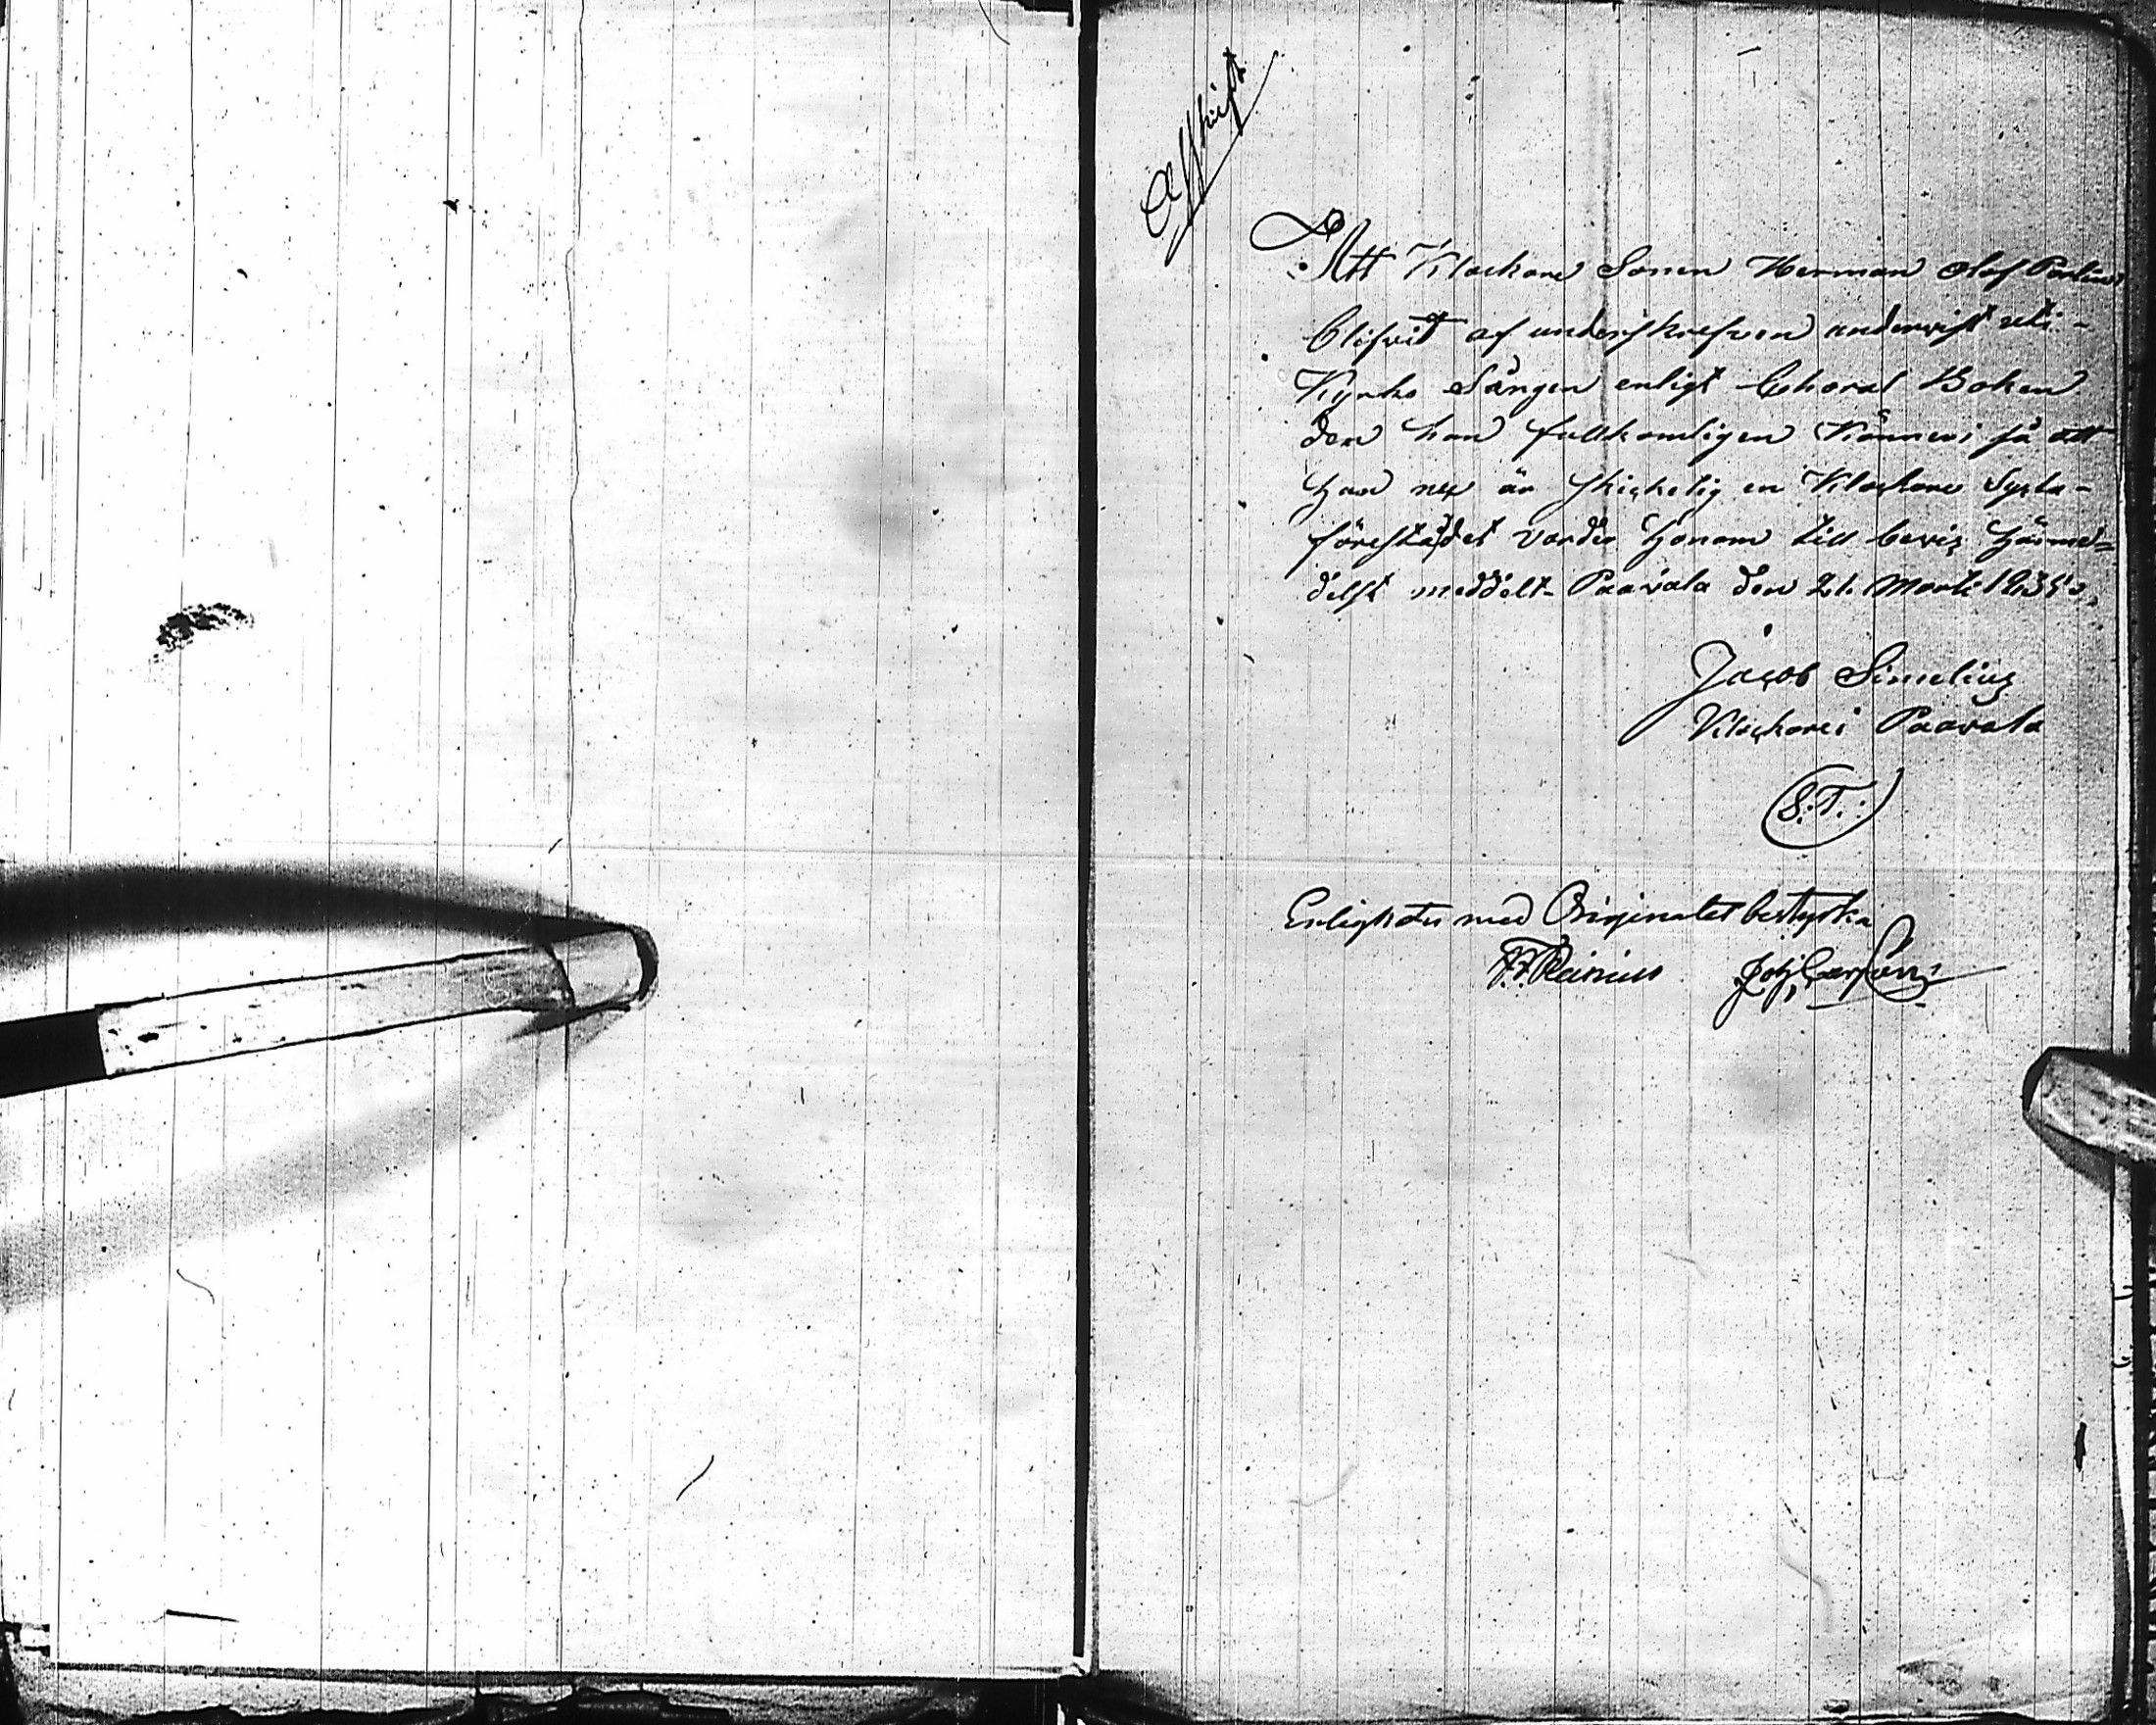 Affskrift
Att Klockare Sonen Herman Olof
blifvit af underskrefven undervist uti-
Kyrko Sången enligt Choral Boken
den han fullkomligen Känner så att
han nu är skickelig en Klockare Sysla-
förestå, det varder honom till bevis härme-
delst meddelt- Paavola den 21. Martii 1835.
Jacob Simelius
Klockare i Paavola
(S:T.:)
Enligheten med Originalet bestyrka